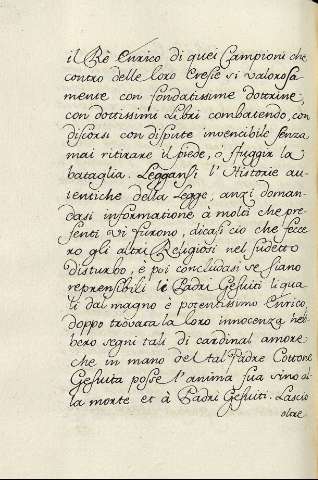 il Rè Enrico di quei Campioni che
contro delle loro Eresie si valorosa
mente con fondatissime dottrine,
con dottissimi Libri combatendo, con
discorsi con dispute invencibile senza
mai ritirare il piede, ò sfuggir la
bataglia. Leggansi l'Historie au-
tentiche della Legge, anzi doman-
dasi informatione à molti che pre-
senti vi furono, dicasi ciò che fece
ro gli altri Religiosi nel sudetto
disturbo, e poi concludasi se siano
reprensibili li Padri Gesuiti li qua
li dal magno è potentissimo Enrico,
doppo trovata la loro innocenza heb
bero segni tali di cardinal amore
che in mano del tal Padre Cottone
Gesuita posse l'anima sua sino al
la morte et à Padri Gesuiti. Lascio
oltre